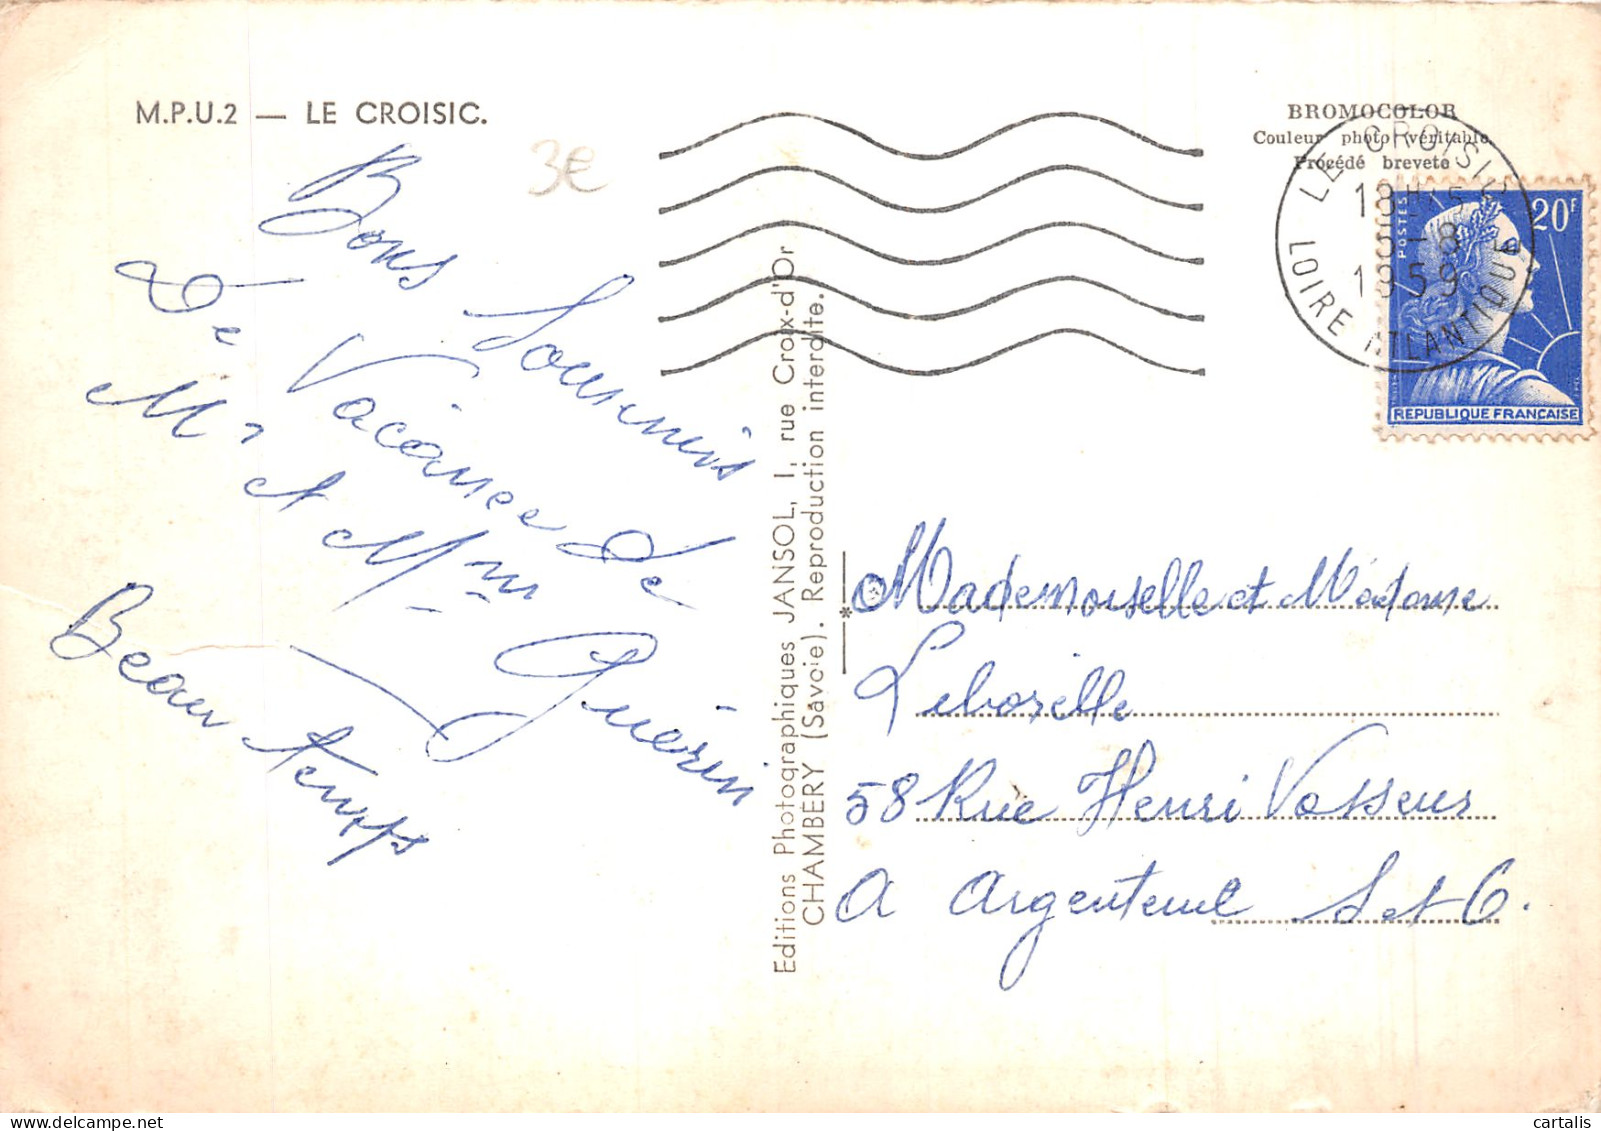 M.P.U.2 — LE CROISIC.
3€
Bons Souvenirs
De Vacances De
Mr et Mme Guérin
Beau temps
Editions Photographiques JANSOL, 1, rue Croix-d'Or
CHAMBÉRY (Savoie). Reproduction interdite.
BROMOCOLOR
Couleur photo véritable
Procédé breveté
LE CROISIC
18H
5-8
1959
LOIRE ATLANTIQUE
POSTES
20F
REPUBLIQUE FRANÇAISE
Mademoiselle et Madame
58 Rue Henri Vasseur
A Argenteuil S et O.
cartalis